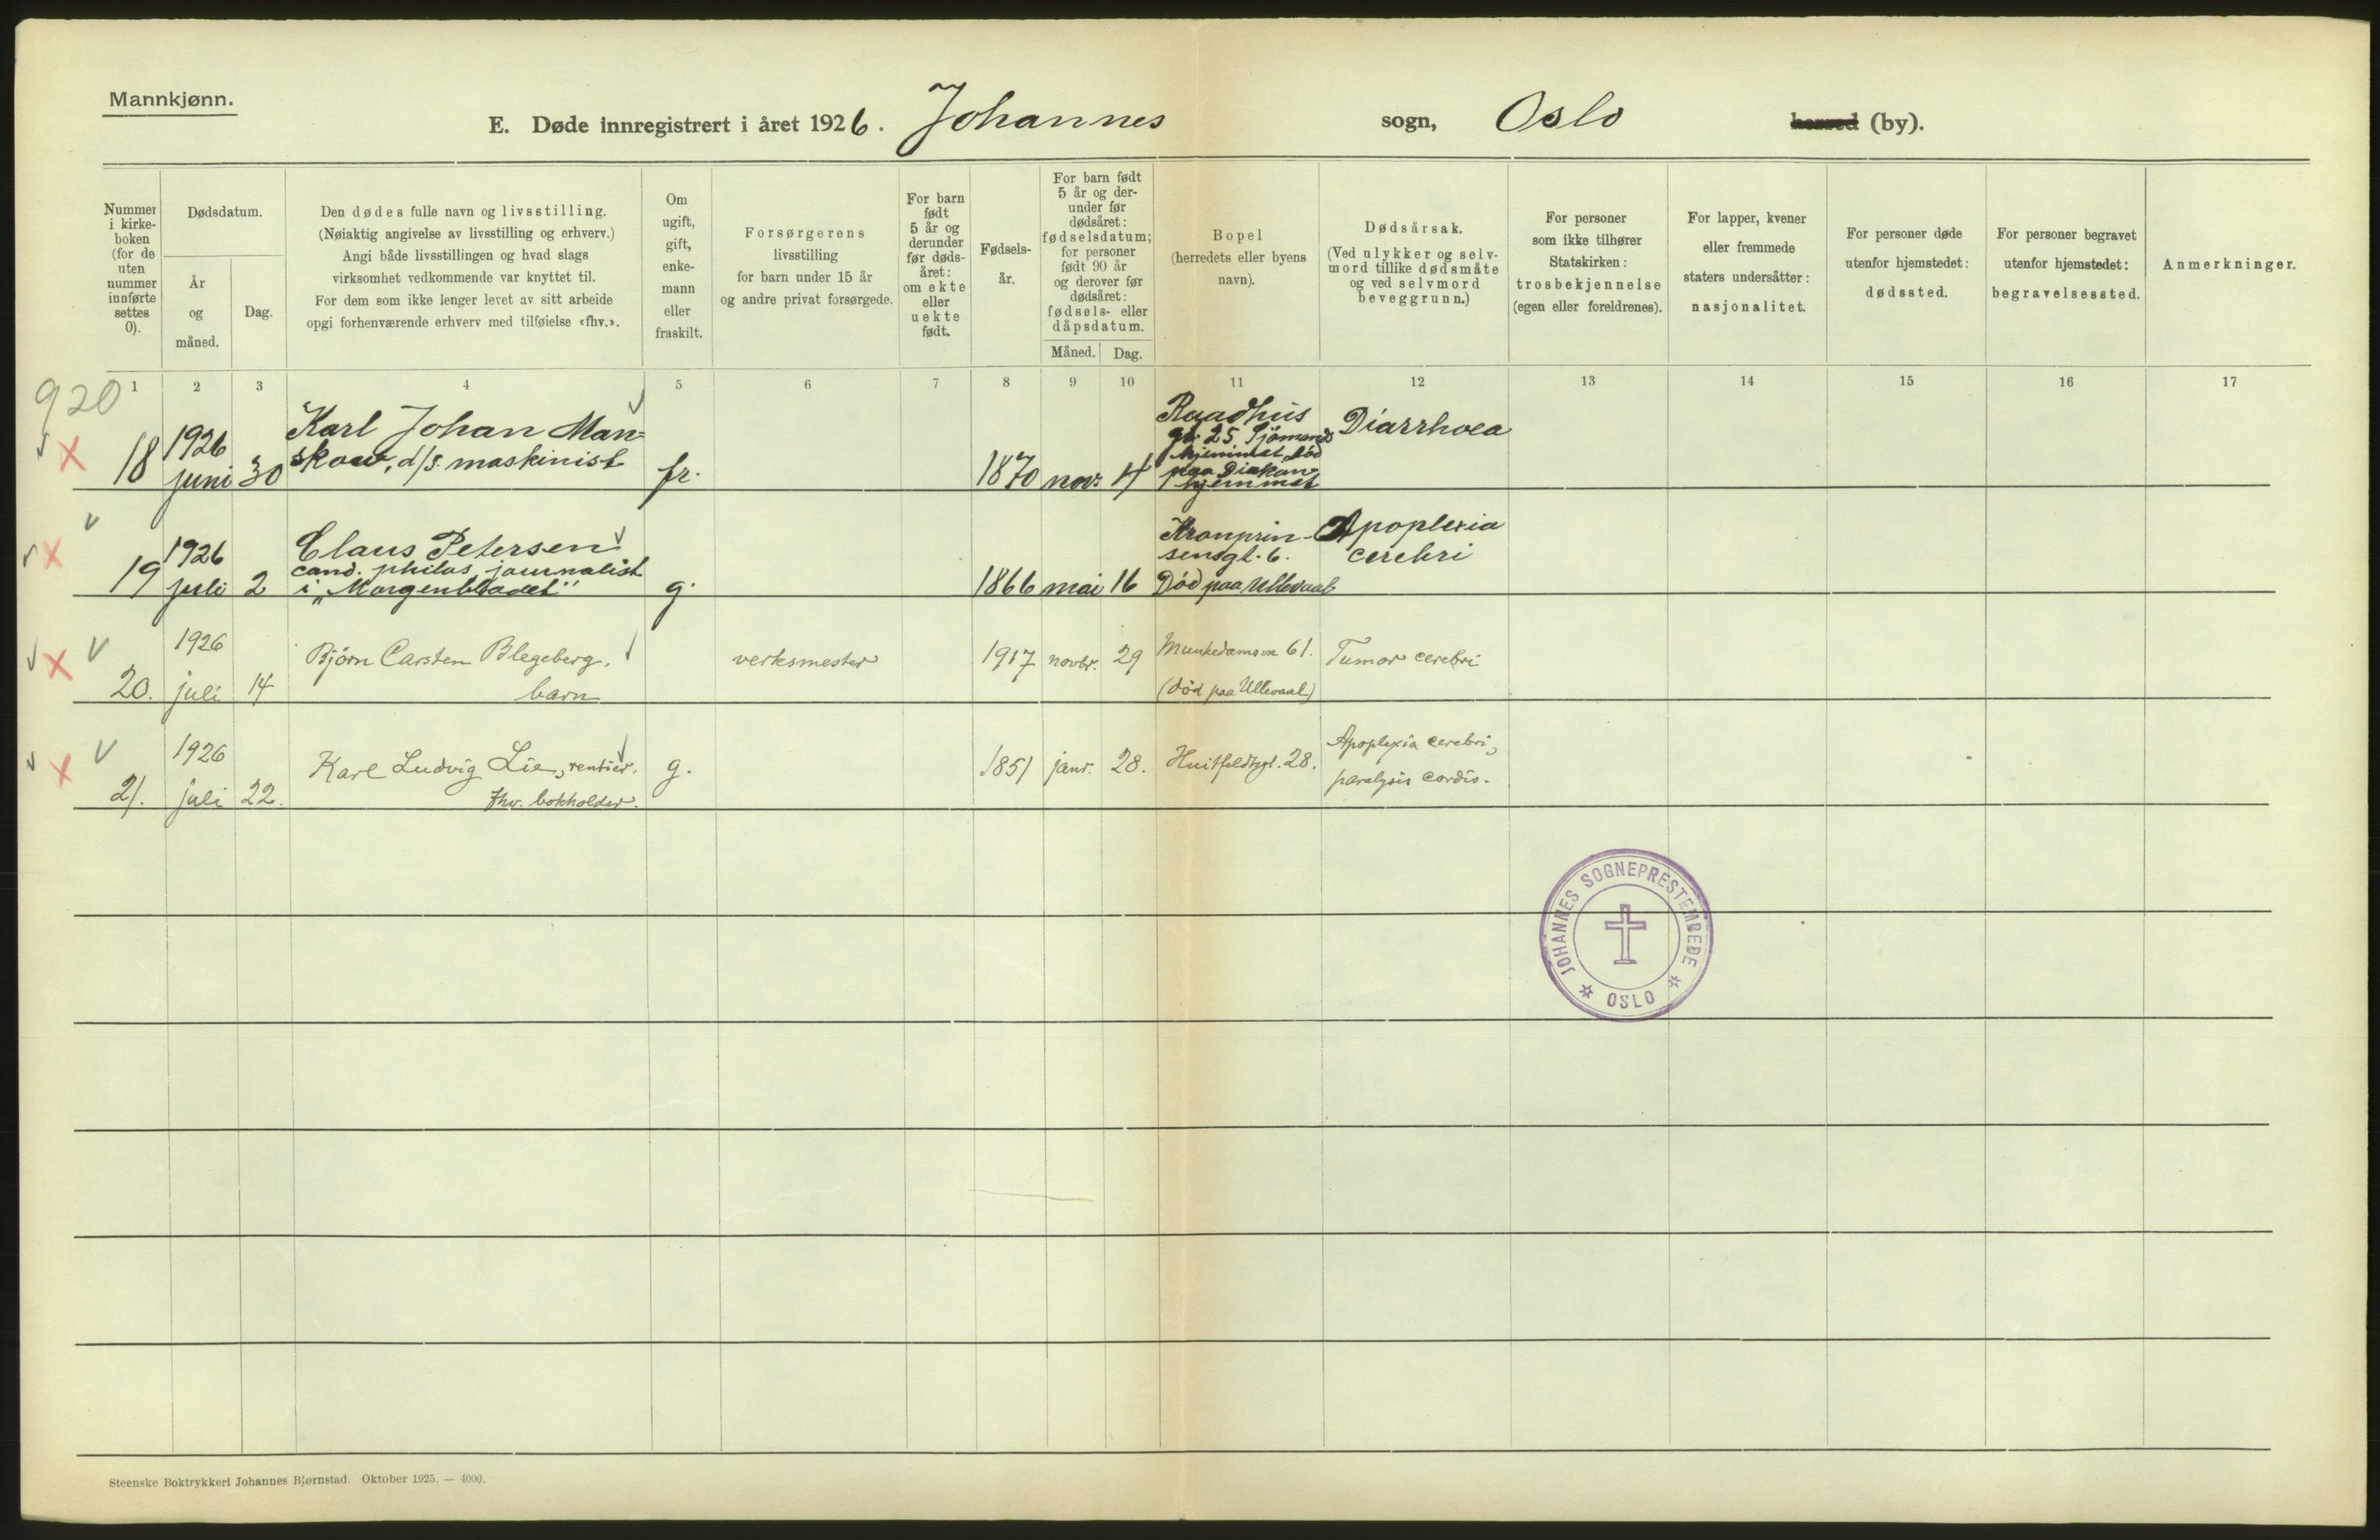 Mannkjønn.
E. Døde innregistrert i året 1926. Johannes sogn, Oslo herred (by).
Nummer i kirke-boken (for de uten nummer innførte settes 0).
Dødsdatum.
År og måned.
Dag.
Den dødes fulle navn og livsstilling.
(Nøiaktig angivelse av livsstilling og erhverv.)
Angi både livsstillingen og hvad slags
virksomhet vedkommende var knyttet til.
For dem som ikke lenger levet av sitt arbeide
opgi forhenværende erhverv med tilføielse «fhv.».
Om ugift, gift, enke-mann eller fraskilt.
Forsørgerens
livsstilling
for barn under 15 år
og andre privat forsørgede.
For barn født 5 år og derunder før døds-året: om ekte eller uekte født.
Fødsels-år.
For barn født 5 år og der-under før dødsåret: fødselsdatum; for personer født 90 år og derover før dødsåret: fødsels- eller dåpsdatum.
Måned.
Dag.
Bopel
(herredets eller byens
navn).
Dødsårsak.
(Ved ulykker og selv-
mord tillike dødsmåte
og ved selvmord
beveggrunn.)
For personer
som ikke tilhører
Statskirken:
trosbekjennelse
(egen eller foreldrenes).
For lapper, kvener
eller fremmede
staters undersåtter:
nasjonalitet.
For personer døde
utenfor hjemstedet:
dødssted.
For personer begravet
utenfor hjemstedet:
begravelsessted.
Anmerkninger.
1 2 3 4 5 6 7 8 9 10 11 12 13 14 15 16 17
920
18 1926 juni 30
Karl Johan Man-
skow, d/s. maskinist
fr.
1870 nov. 4
Raadhus
gt. 25 Sjömands
hjemmet Död
paa Diakon-
hjemmet
Diarrhoea
19 1926 juli 2
Claus Petersen
cand. philos, journalist
i „Morgenbladet"
g.
1866 mai 16
Kronprin-
sensgt. 6.
Död paa Ullevaal
Apoplexia
cerebri
20. 1926 juli 14
Björn Carsten Blegeberg.
barn
verksmester
1917 novbr. 29
Munkedamsvn 61.
(död paa Ullevaal)
Tumor cerebri
21. 1926 juli 22.
Karl Ludvig Lie, rentier.
fhv. bokholder.
g.
1851 janr. 28.
Huitfeldtsgt. 28.
Apoplexia cerebri,
paralysis cordis.
JOHANNES SOGNEPRESTEMBEDE
OSLO
Steenske Boktrykkeri Johannes Bjørnstad. Oktober 1925. — 4000.